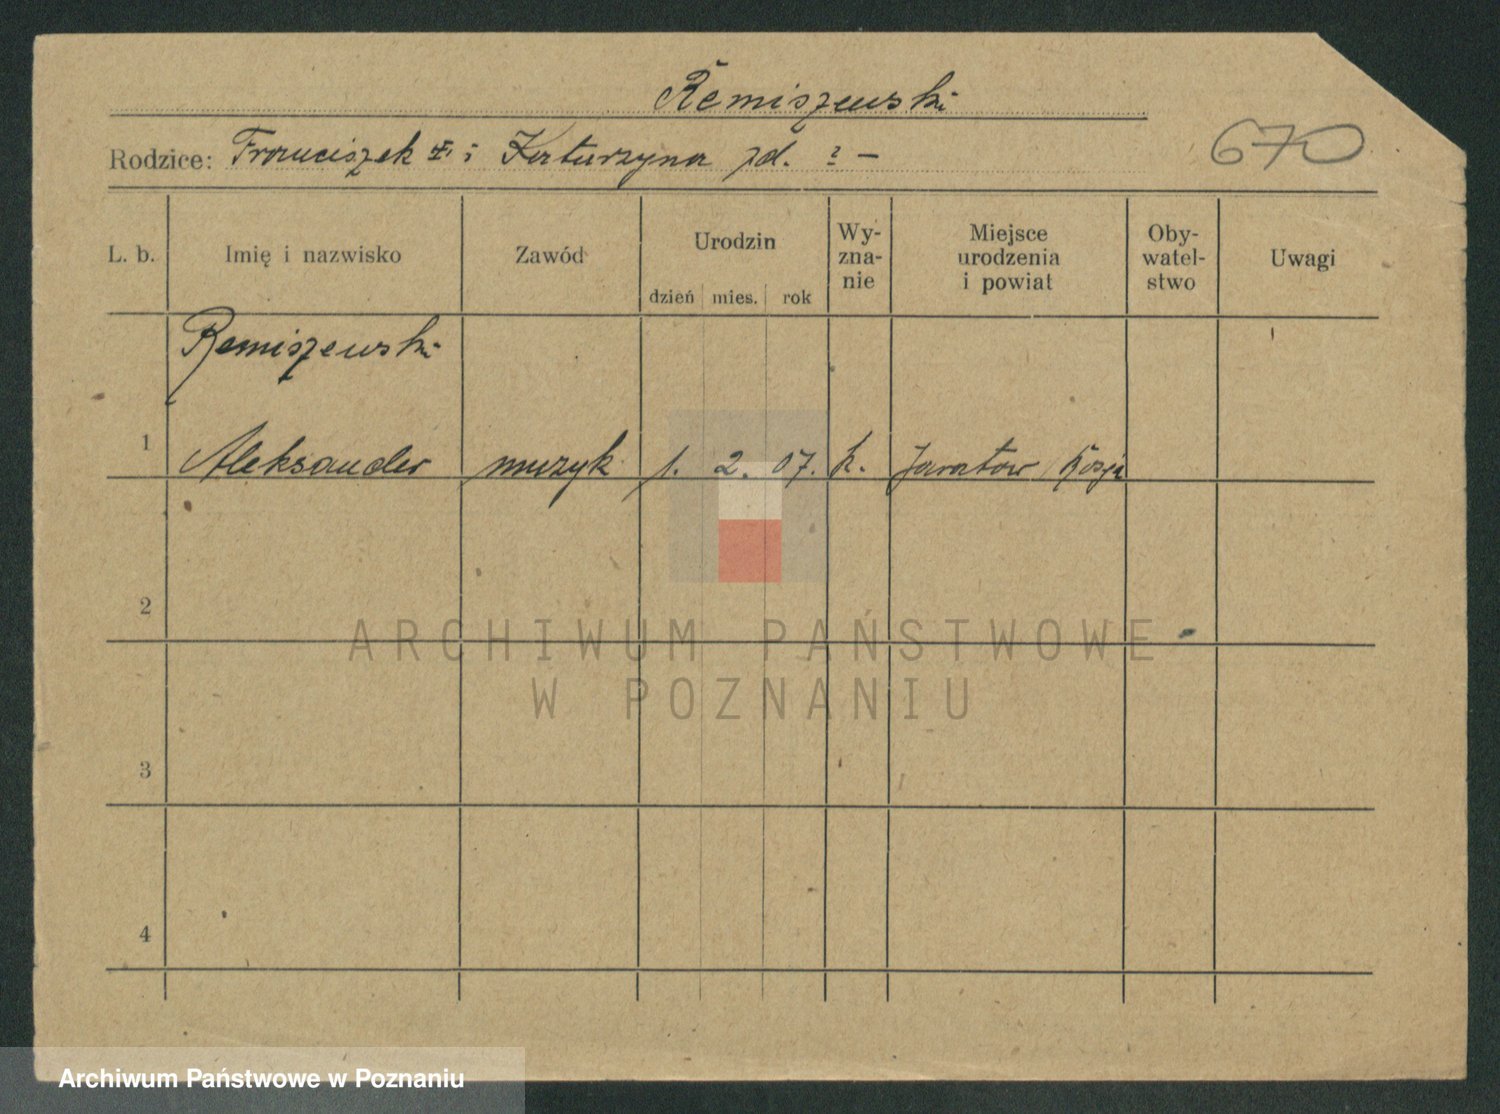 Remiszewski
670
Rodzice: Franciszek i Katarzyna zd. ? —
L. b. Imię i nazwisko Zawód Urodzin dzień mies. rok Wy-zna-nie Miejsce urodzenia i powiat Oby-watel-stwo Uwagi
Remiszewski
1 Aleksander muzyk 1. 2. 07. k. Saratow / Rosja
2
3
4
ARCHIWUM PAŃSTWOWE
W POZNANIU
Archiwum Państwowe w Poznaniu